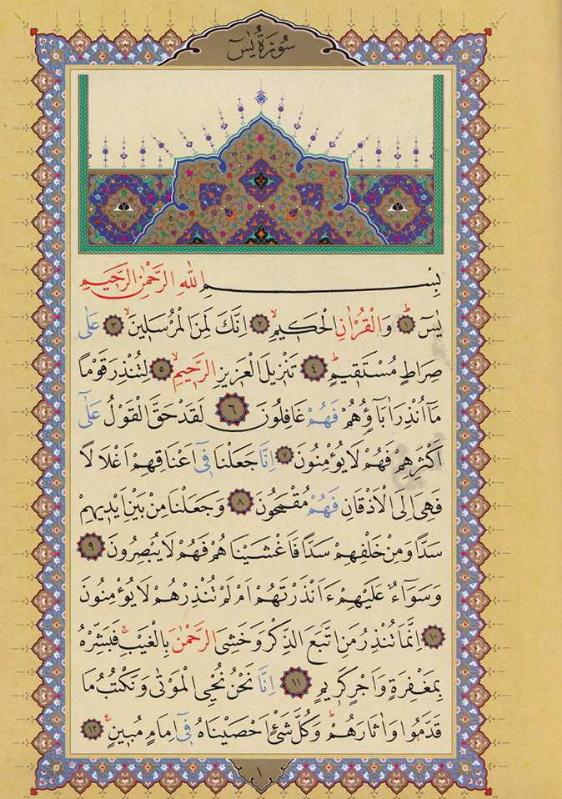 سُورَةُ يٰسٓ
بِسْمِ اللّٰهِ الرَّحْمٰنِ الرَّحِيمِ
يٰسٓ ۚ ١ وَالْقُرْاٰنِ الْحَكِيمِۙ ٢ اِنَّكَ لَمِنَ الْمُرْسَلِينَۙ ٣ عَلٰى
صِرَاطٍ مُسْتَقِيمٍۜ ٤ تَنْزِيلَ الْعَزِيزِ الرَّحِيمِۙ ٥ لِتُنْذِرَ قَوْمًا
مَٓا اُنْذِرَ اٰبَٓاؤُ۬هُمْ فَهُمْ غَافِلُونَ ٦ لَقَدْ حَقَّ الْقَوْلُ عَلٰٓى
اَكْثَرِهِمْ فَهُمْ لَا يُؤْمِنُونَ ٧ اِنَّا جَعَلْنَا فٖٓى اَعْنَاقِهِمْ اَغْلَالًا
فَهِىَ اِلَى الْاَذْقَانِ فَهُمْ مُقْمَحُونَ ٨ وَجَعَلْنَا مِنْ بَيْنِ اَيْدِيهِمْ
سَدًّا وَمِنْ خَلْفِهِمْ سَدًّا فَاَغْشَيْنَاهُمْ فَهُمْ لَا يُبْصِرُونَ ٩
وَسَوَٓاءٌ عَلَيْهِمْ ءَاَنْذَرْتَهُمْ اَمْ لَمْ تُنْذِرْهُمْ لَا يُؤْمِنُونَ
١٠ اِنَّمَا تُنْذِرُ مَنِ اتَّبَعَ الذِّكْرَ وَخَشِىَ الرَّحْمٰنَ بِالْغَيْبِۚ فَبَشِّرْهُ
بِمَغْفِرَةٍ وَاَجْرٍ كَرِيمٍ ١١ اِنَّا نَحْنُ نُحْيِ الْمَوْتٰى وَنَكْتُبُ مَا
قَدَّمُوا وَاٰثَارَهُمْۜ وَكُلَّ شَىْءٍ اَحْصَيْنَاهُ فٖٓى اِمَامٍ مُبِينٍ۟ ١٢
١